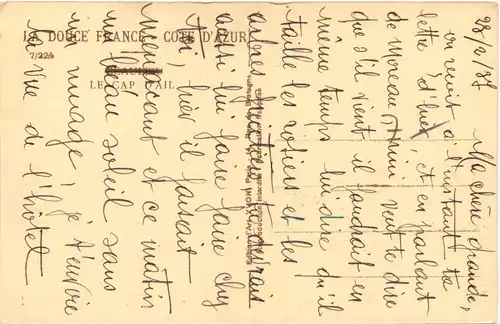 LA DOUCE FRANCE - CÔTE D'AZUR
7/224
LE CAP D'AIL
28/2/37
Ma chère grande,
on reçoit à l'instant ta
lettre d'hier, et en parlant
de Moreau, Mimi veut te dire
que s'il vient il faudrait en
même temps lui dire qu'il
taille les rosiers et les
arbres
aussi lui faire faire chez
toi, hier il faisait
menaçant et ce matin
beau soleil sans
nuage! je t'envoie
la vue de l'hôtel